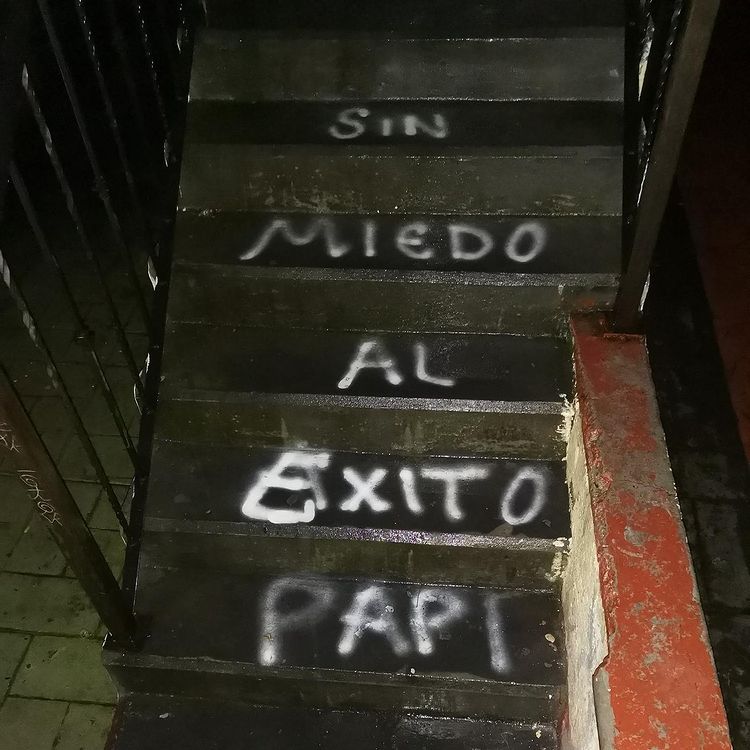 SIN
MIEDO
AL
EXITO
PAPI